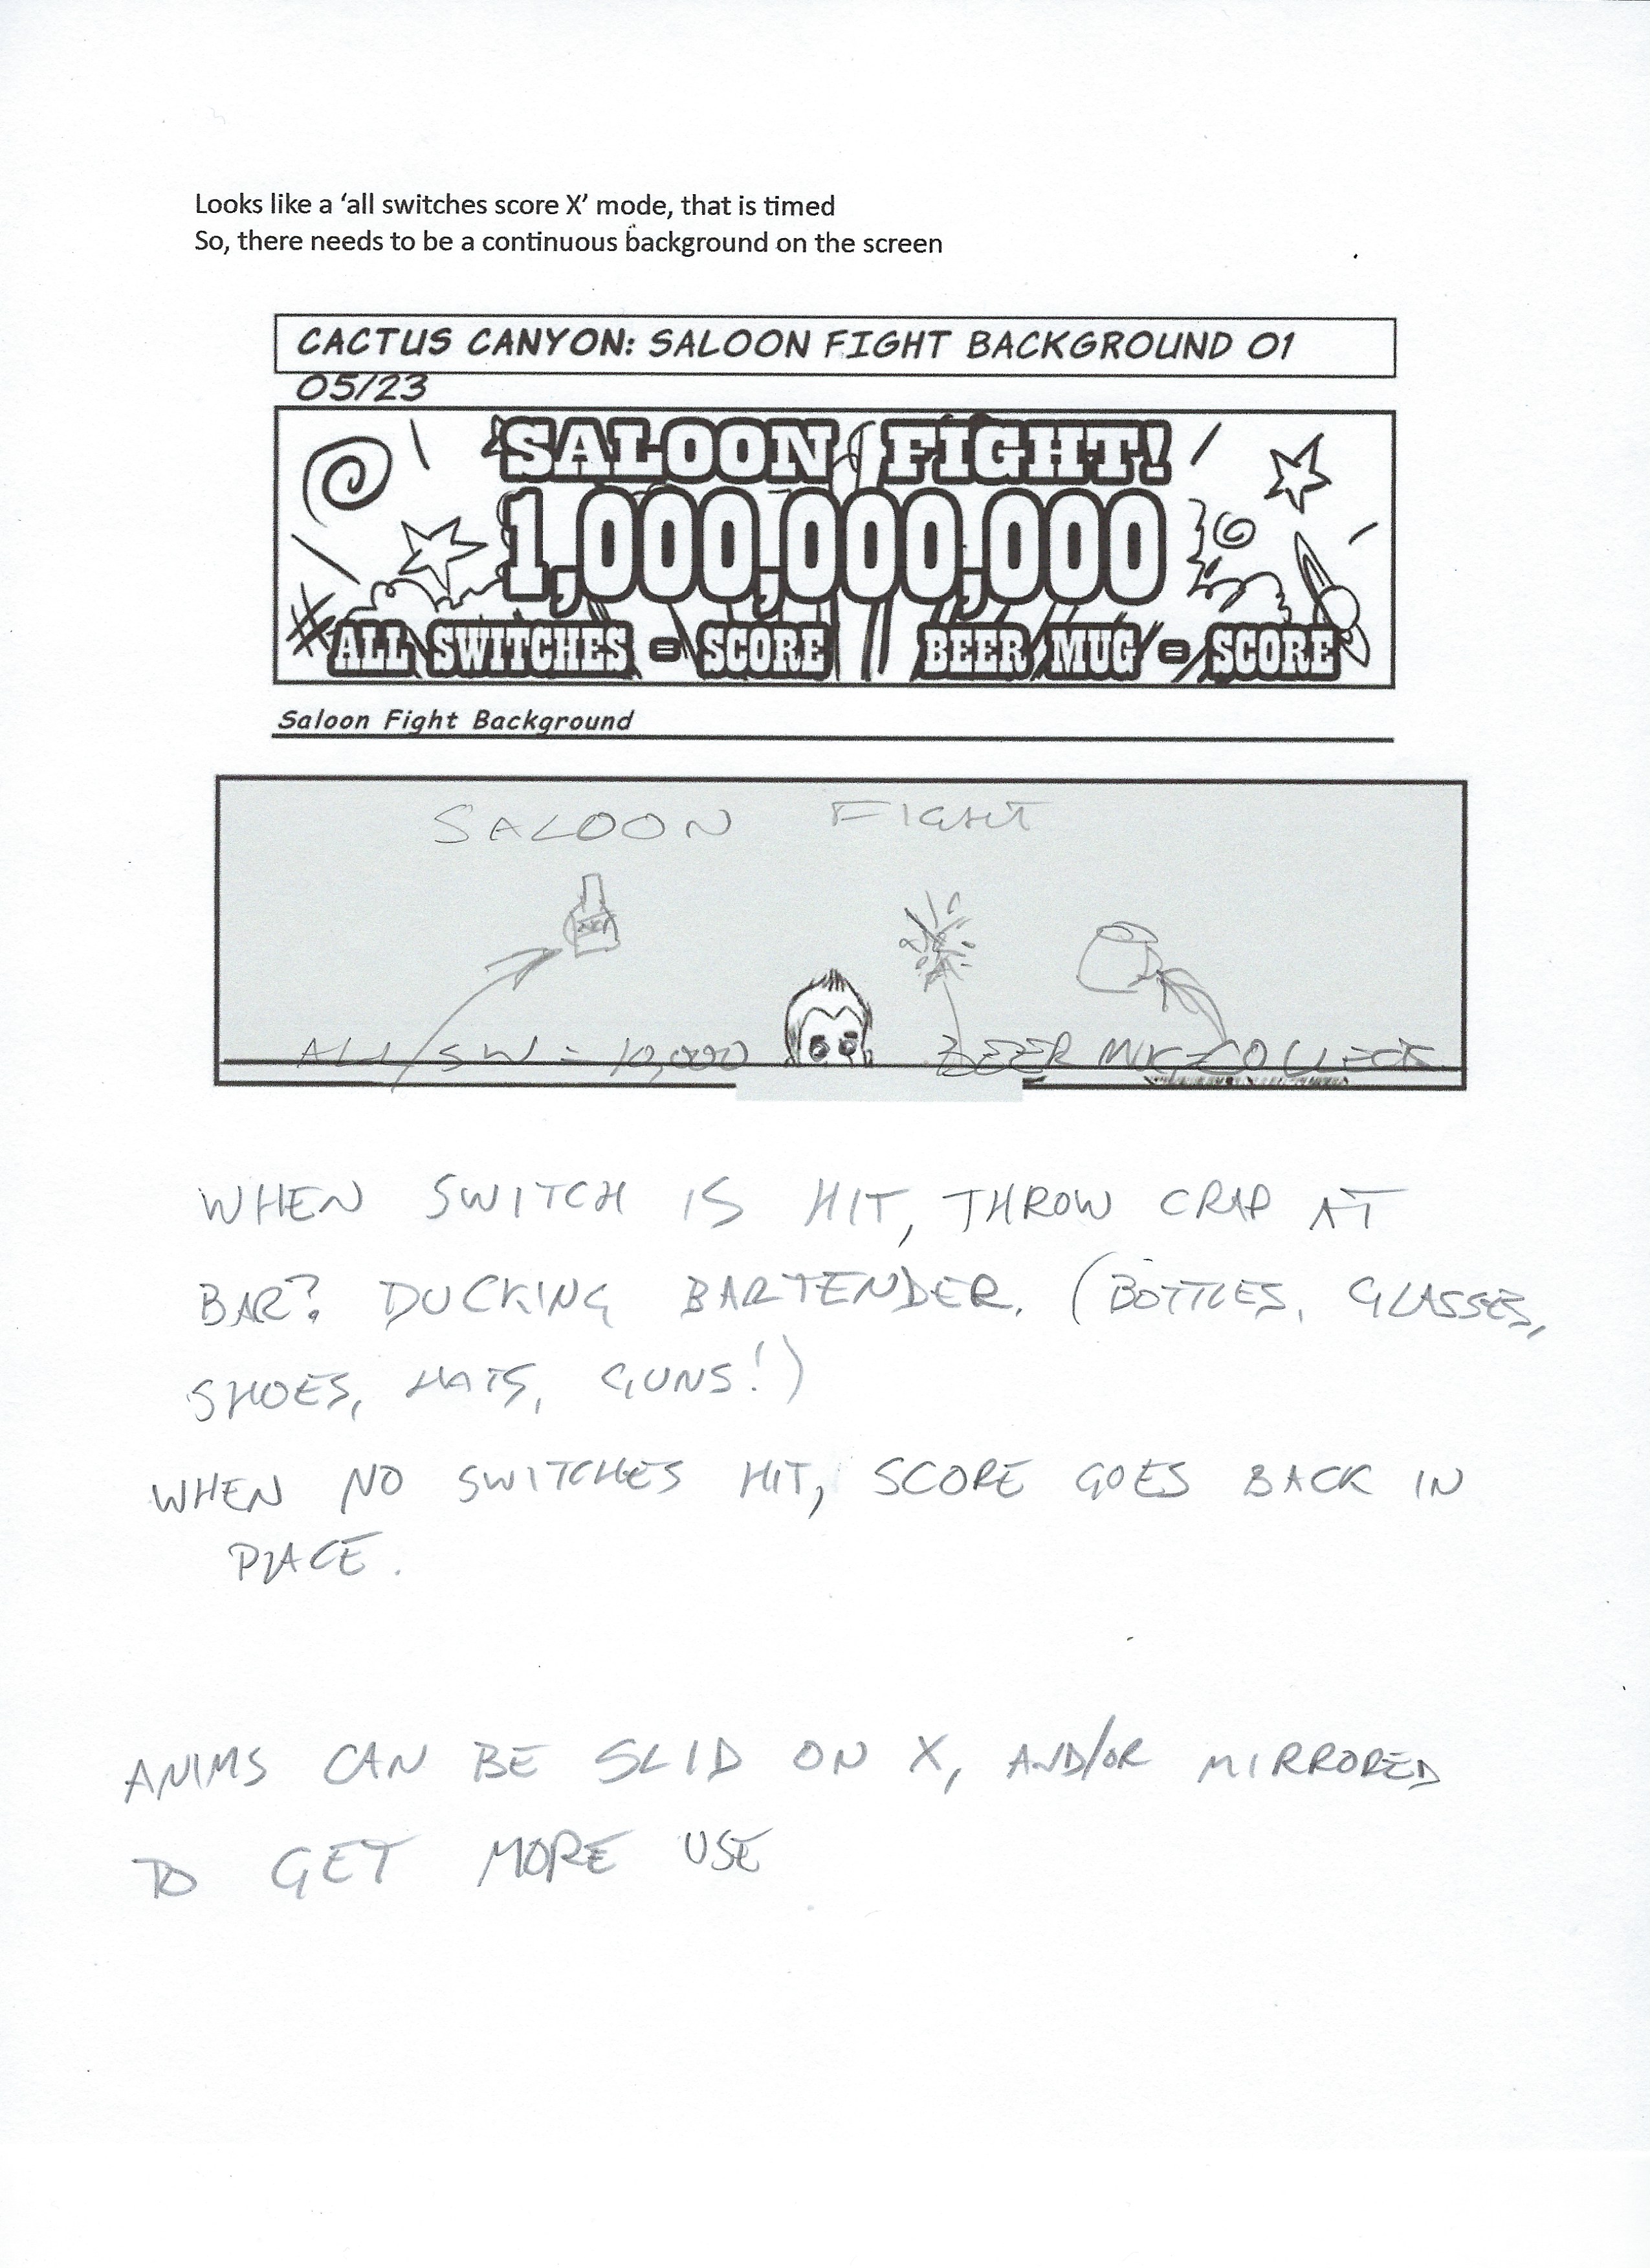 Looks like a ‘all switches score X’ mode, that is timed
So, there needs to be a continuous background on the screen
CACTUS CANYON: SALOON FIGHT BACKGROUND 01
05/23
SALOON FIGHT!
1,000,000,000
ALL SWITCHES = SCORE BEER MUG = SCORE
Saloon Fight Background
SALOON FIGHT
ALL SW = 10,000 BEER COLLECT
WHEN SWITCH IS HIT, THROW CRAP AT
BAR? DUCKING BARTENDER. (BOTTLES, GLASSES,
SHOES, HATS, GUNS!)
WHEN NO SWITCHES HIT, SCORE GOES BACK IN
PLACE.
ANIMS CAN BE SLID ON X, AND/OR MIRRORED
TO GET MORE USE